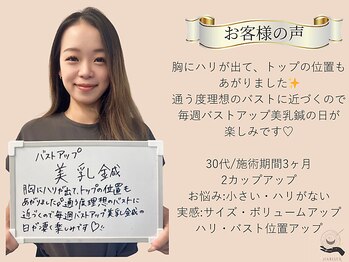 お客様の声
胸にハリが出て、トップの位置も
あがりました✨
通う度理想のバストに近づくので
毎週バストアップ美乳鍼の日が
楽しみです♡
30代/施術期間3ヶ月
2カップアップ
お悩み:小さい・ハリがない
実感:サイズ・ボリュームアップ
ハリ・バスト位置アップ
バストアップ
美乳鍼
胸にハリが出て、トップの位置も
あがりました!!通う度理想のバストに
近づくので毎週バストアップ美乳鍼の
日が凄く楽しみです♡!!